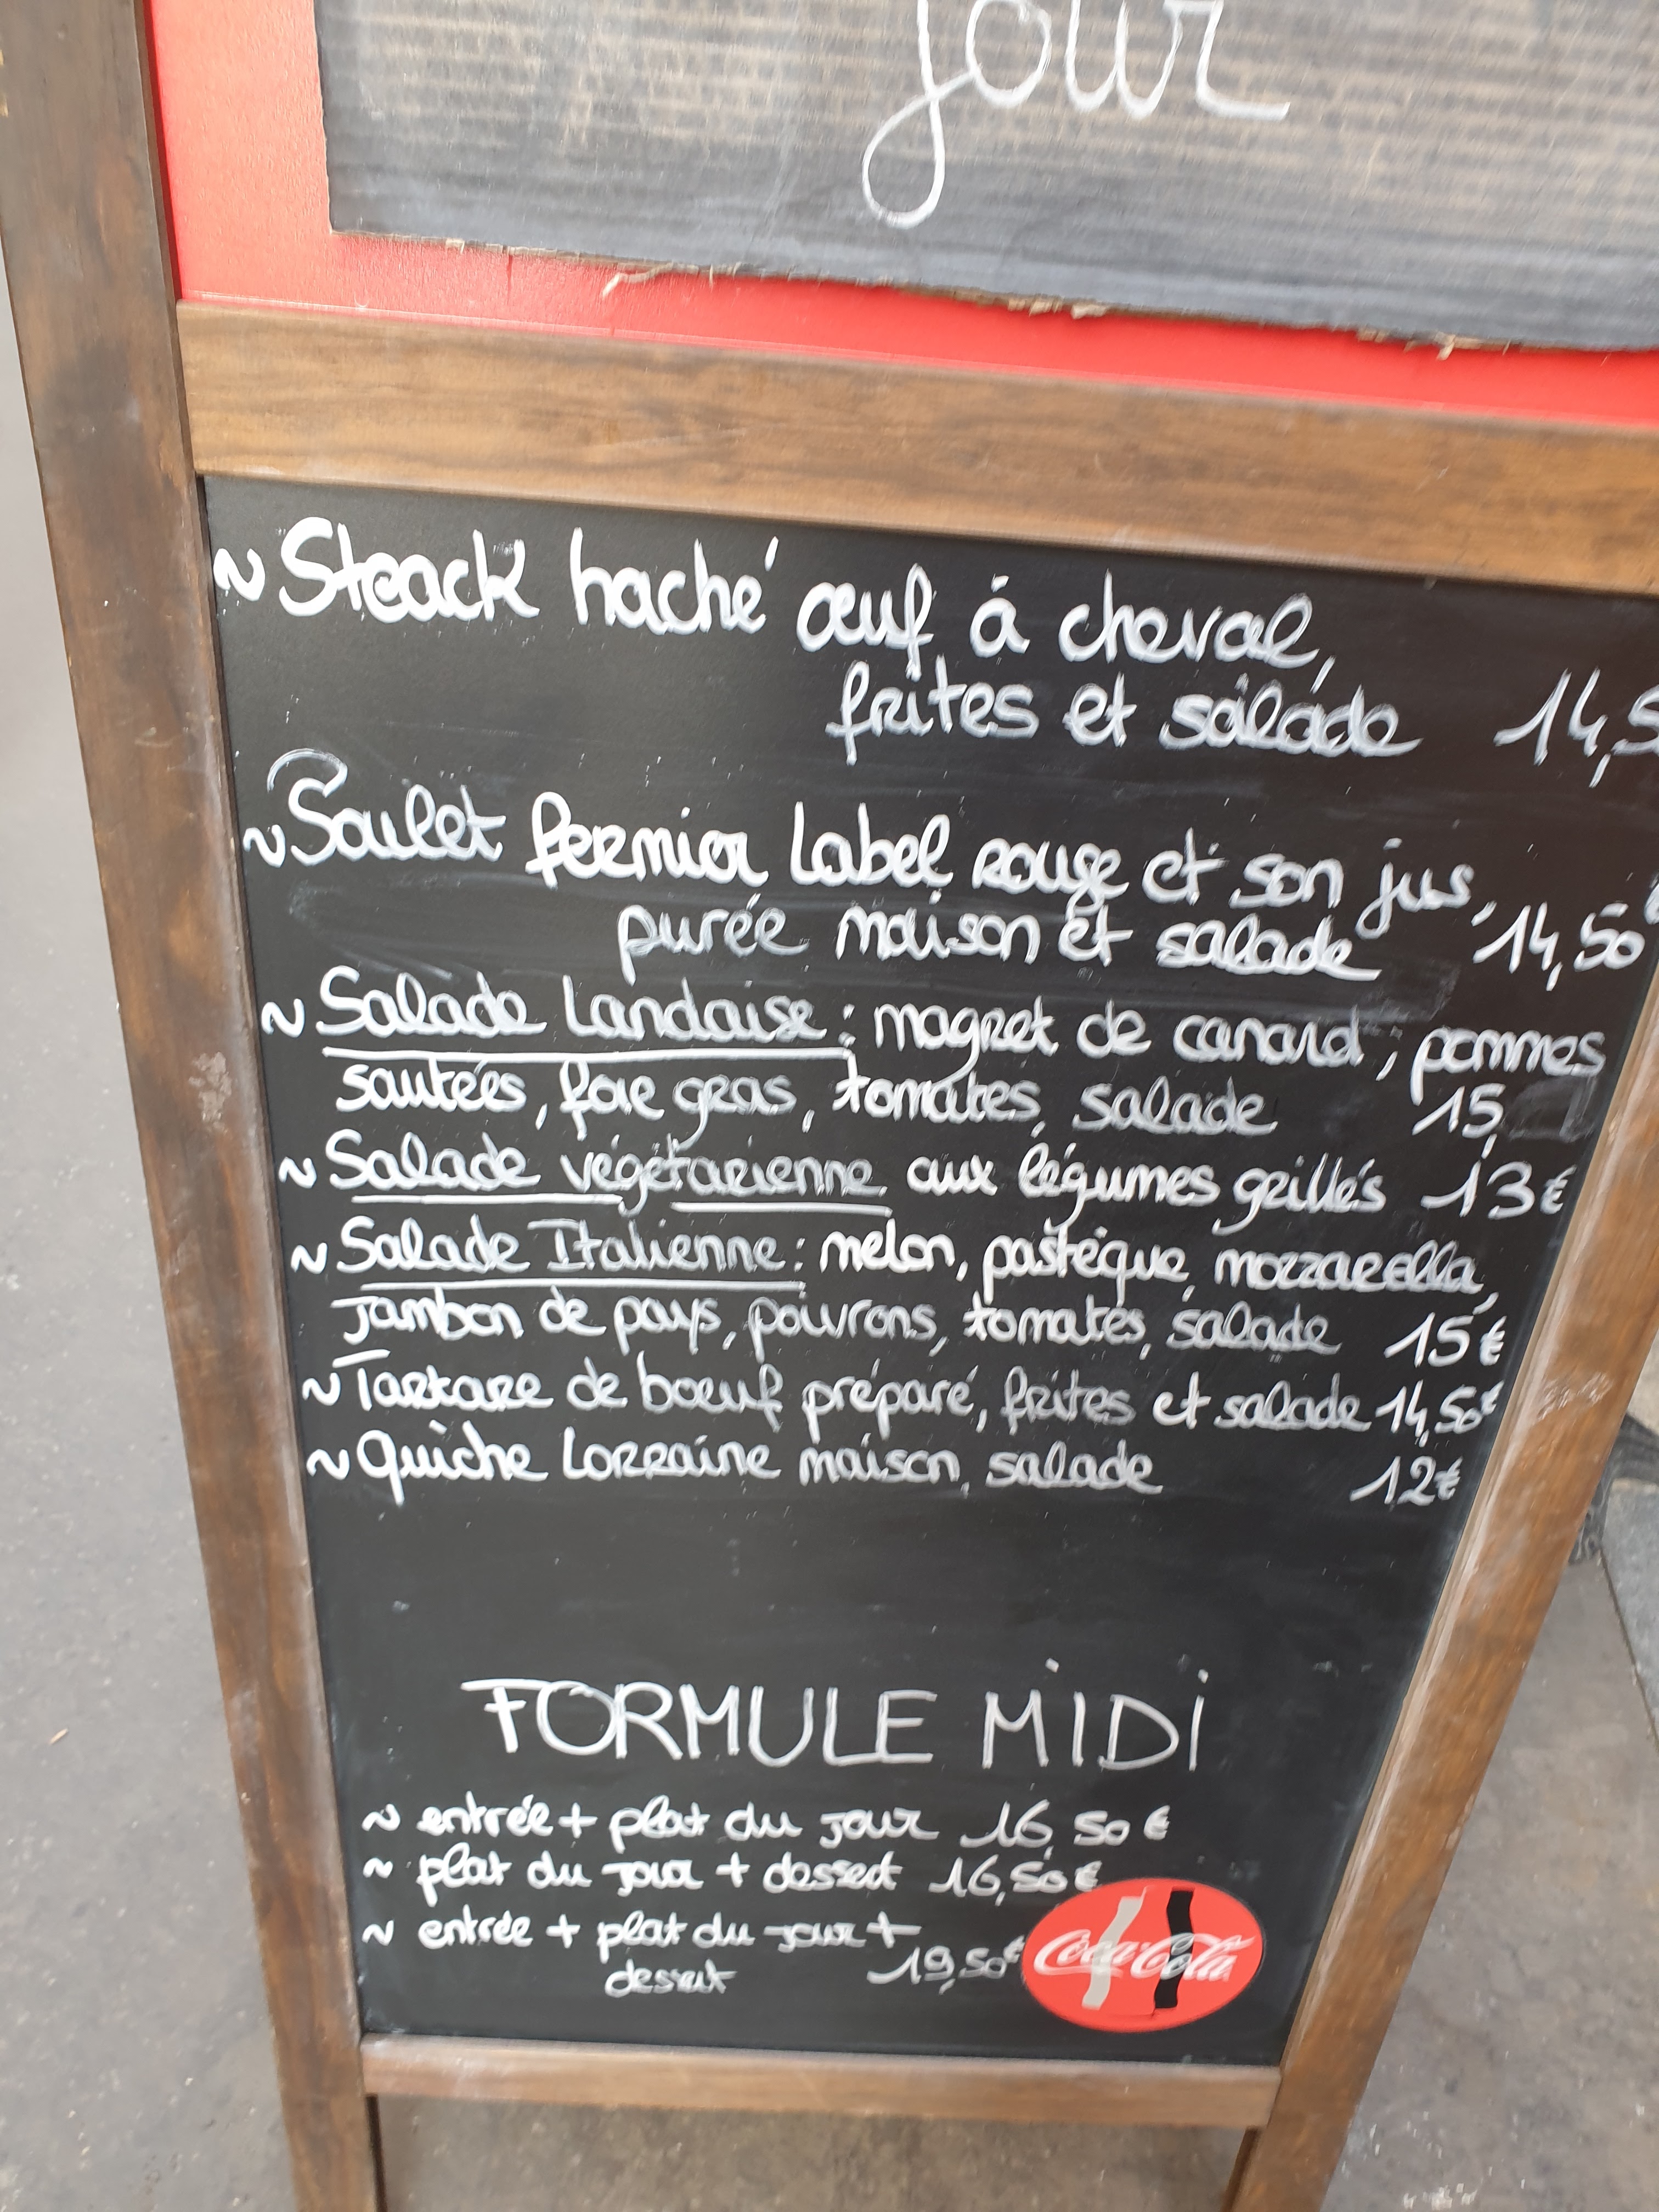 jour
~ Steack haché œuf à cheval,
frites et salade 14,5
~ Poulet fermier Label rouge et son jus,
purée maison et salade 14,50
~ Salade Landaise : magret de canard, pommes
sautées, foie gras, tomates, salade 15,
~ Salade végétarienne aux légumes grillés 13€
~ Salade Italienne : melon, pastèque, mozzarella,
Jambon de pays, poivrons, tomates, salade 15€
~ Tartare de bœuf préparé, frites et salade 14,50€
~ Quiche Lorraine maison, salade 12€
FORMULE MIDI
~ entrée + plat du jour 16,50€
~ plat du jour + dessert 16,50€
~ entrée + plat du jour +
dessert 19,50€
Coca-Cola